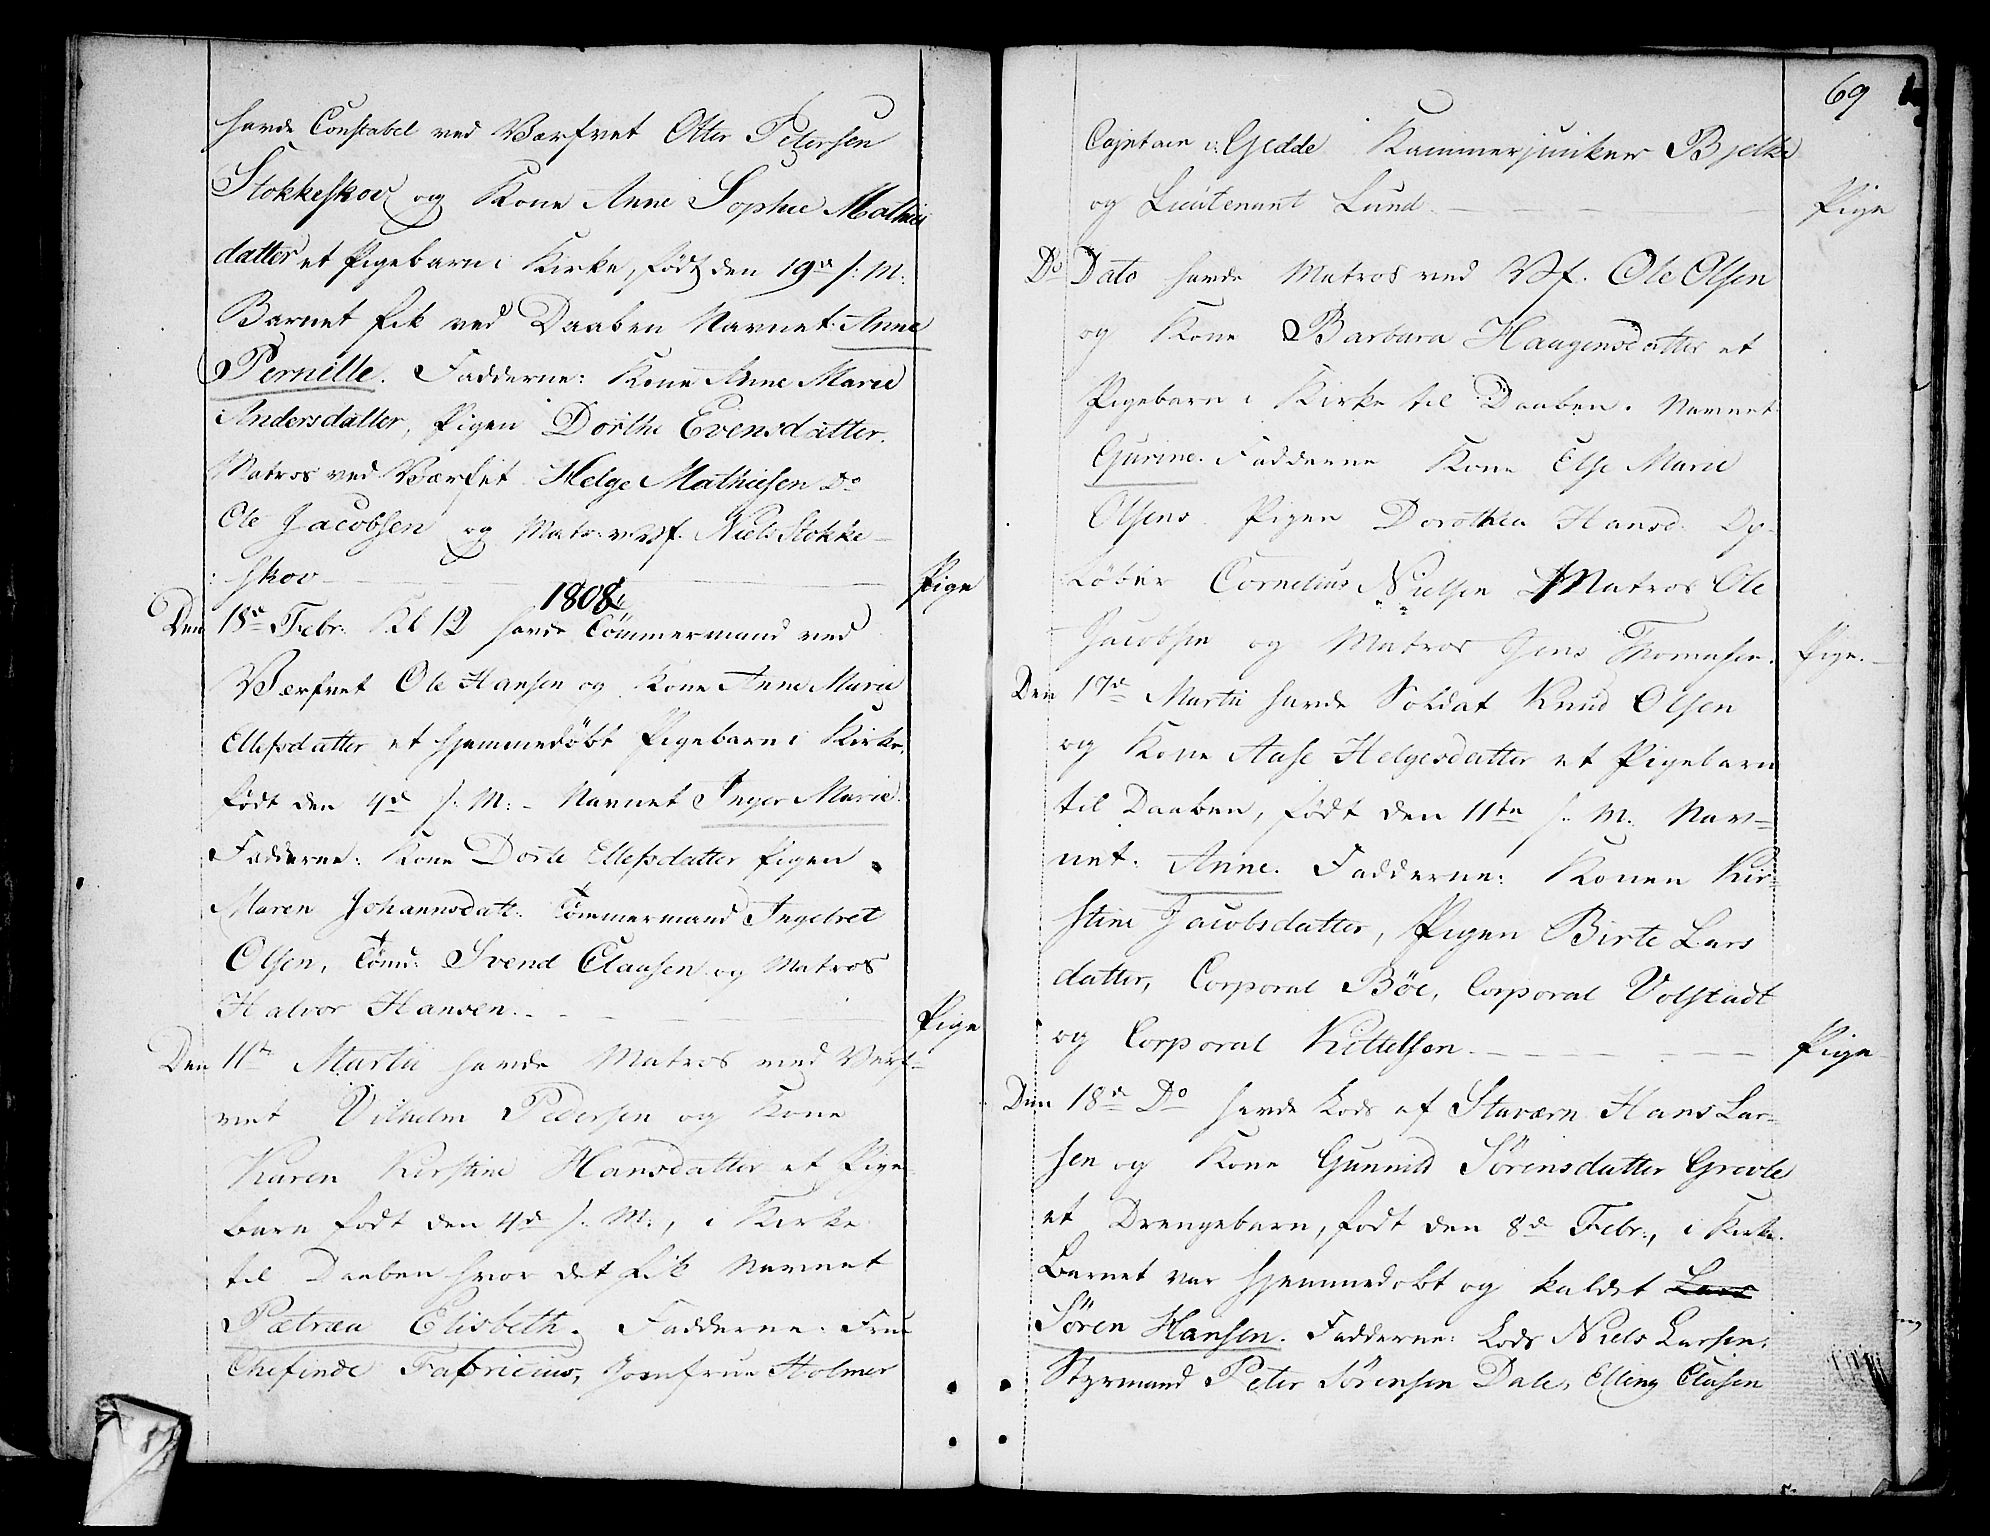 havde Constabel ved Værfvet Otter Petersen
Stokkeskov og Kone Anne Sophie Mathis
datter et Pigebarn i Kirke, født den 19de s: M:
Barnet fik ved Daaben Navnet: Anne
Pernille. Fadderne: Kone Anne Marie
Andersdatter, Pigen Dorthe Evensdatter.
Matros ved Værfet Helge Mathiesen Do
Ole Jacobsen og Matr: v. Vf. Niels Stokke-
skov
Pige
1808
Den 18de Febr. Kl 12 havde Tömmermand ved
Værfvet Ole Hansen og Kone Anne Marie
Ellefsdatter et hjemmedøbt Pigebarn i Kirke,
født den 4de s: M: - Navnet Inger Marie.
Fadderne: Kone Dorte Ellefsdatter Pigen
Maren Johannsdatt: Tømmermand Ingebret
Olsen, Tömm: Svend Clausen og Matros
Halvor Hansen.
Pige
Den 11te Martii havde Matros med Verf-
vet Vilhelm Pedersen og Kone
Karen Kirstine Hansdatter et Pige-
barn født den 4de s: M:, i Kirke
til Daaben hvor det fik Navnet
Pætræa Elisbeth. Fadderne: Frue
Chefinde Fabricius, Jomfrue Holmer
69
Capitain v: Gedde Kammerjunker Bjelke
og Lieutenant Lund
Pige
Do Dato havde Matros ved Vf. Ole Olsen
og Kone Barbara Haagensdatter et
Pigebarn i Kirke til Daaben. Navnet
Gurine. Fadderne Kone Else Marie
Olsens Pigen Dorothea Hansd. Op-
Løber Cornelius Nielsen Matros Ole
Jacobsen og Matros Jens Thomasen.
Pige.
Den 17de Martii havde Soldat Knud Olsen
og Kone Aase Helgesdatter et Pigebarn
til Daaben, født den 11te s: M: Nav-
net. Anne. Fadderne: Konen Kir-
stine Jacobsdatter, Pigen Birte Lars
datter, Corporal Böe, Corporal Volstadt
og Corporal Kittelsen
Pige
Den 18de Do havde Lods af Staværn Hans Lar-
sen og Kone Gunnild Sörensdatter Grevle
et Drengebarn, født den 8de Febr:, i Kirke.
Barnet var hjemmedøbt og kaldet Lars
Søren Hansen. Fadderne: Lods Niels Larsen,
Styrmand Peter Sörensen Dale, Elling Clasen